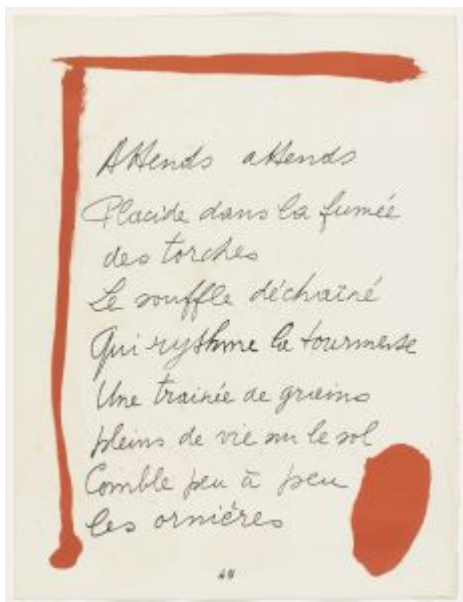 Attends attends
Placide dans la fumée
des torches
Le souffle déchaîné
Qui rythme la tourmente
Une trainée de grains
pleins de vie sur le sol
Comble peu à peu
les ornières